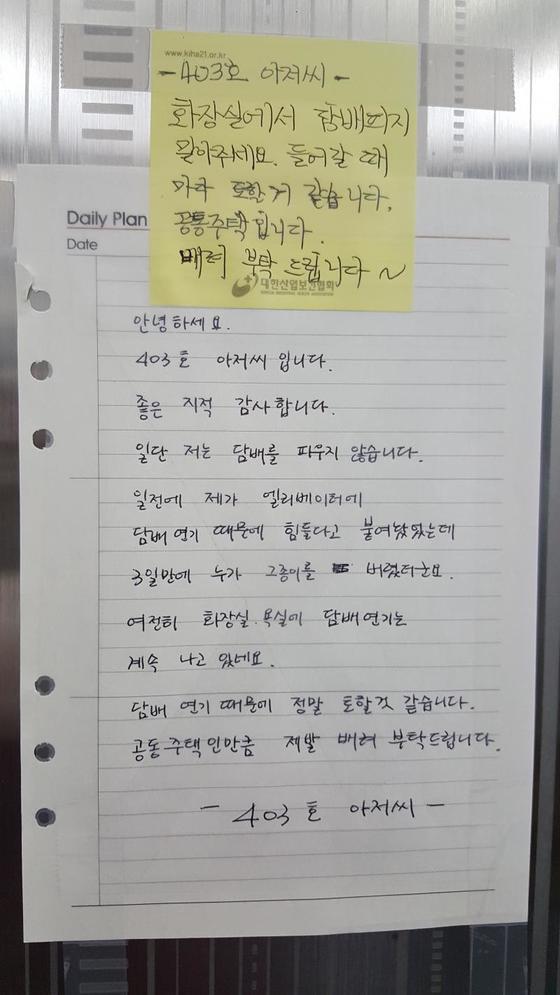 www.kiha21.or.kr
-403호 아저씨-
화장실에서 담배피지
말아주세요. 들어갈 때
마다 토할거 같습니다.
공통주택입니다.
배려 부탁드립니다~
대한산업보건협회
Daily Plan
Date
안녕하세요.
403호 아저씨입니다.
좋은 지적 감사합니다.
일단 저는 담배를 피우지 않습니다.
일전에 제가 엘리베이터에
담배 연기 때문에 힘들다고 붙여놨었는데
3일만에 누가 그종이를 버렸더군요.
여전히 화장실.욕실에 담배연기는
계속 나고 있네요.
담배 연기 때문에 정말 토할것 같습니다.
공동주택인만큼 제발 배려 부탁드립니다.
- 403호 아저씨 -